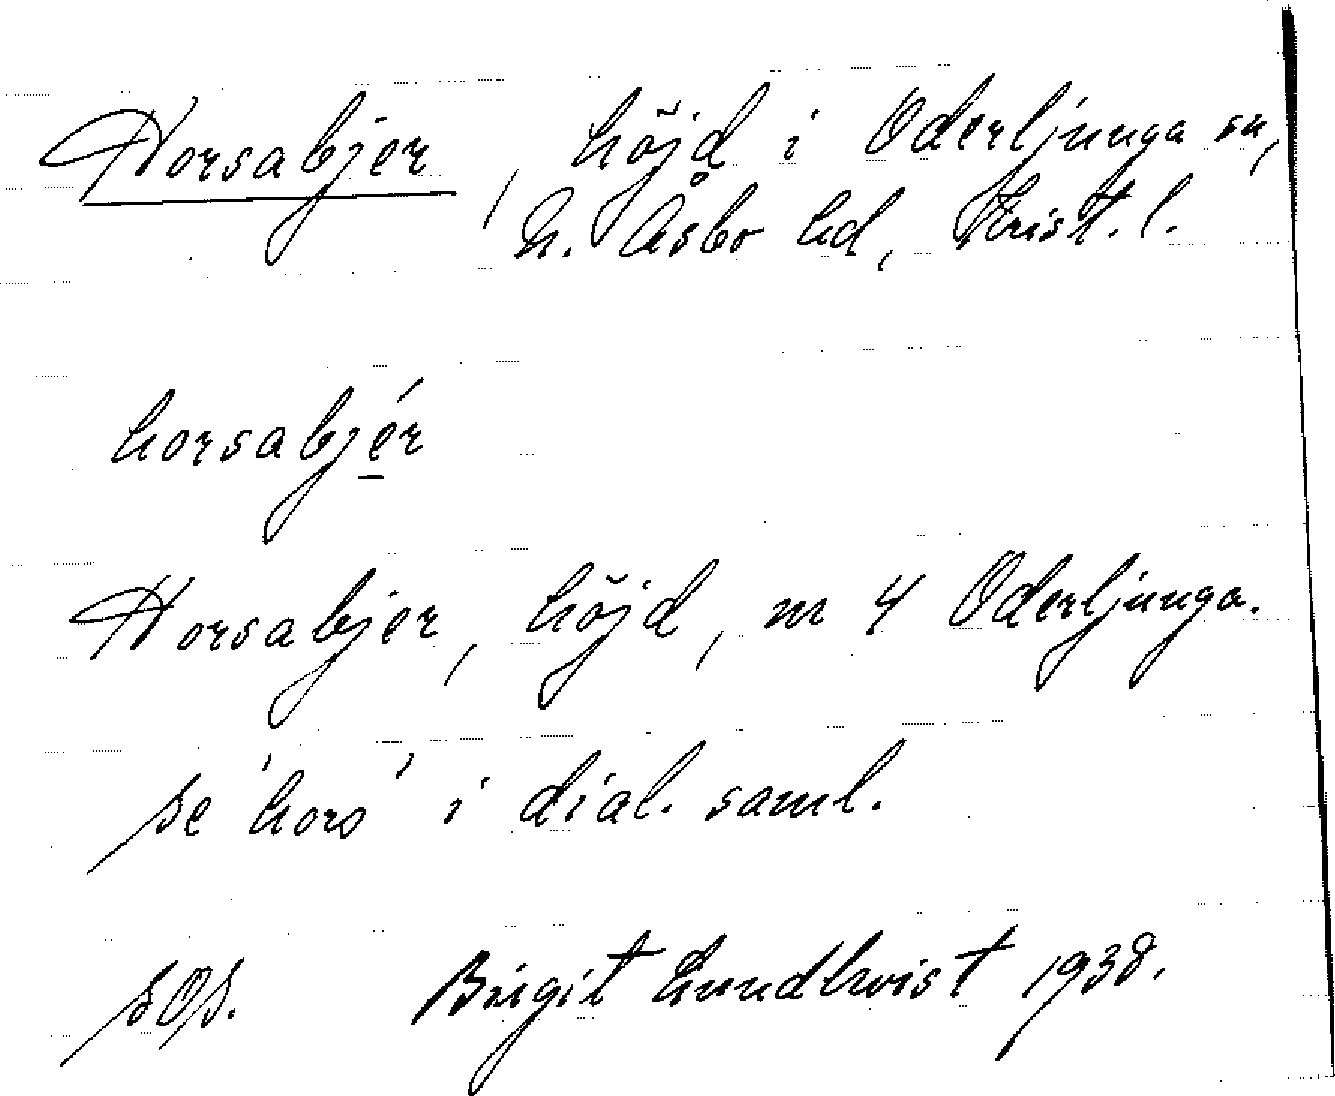 Horsabjer, höjd i Oderljunga sn,
N. Åsbo hd, Krist. l.
horsabjér
Horsabjer, höjd, m 4 Oderljunga.
se 'hors' i dial. saml.
Birgit Lundkvist 1938.